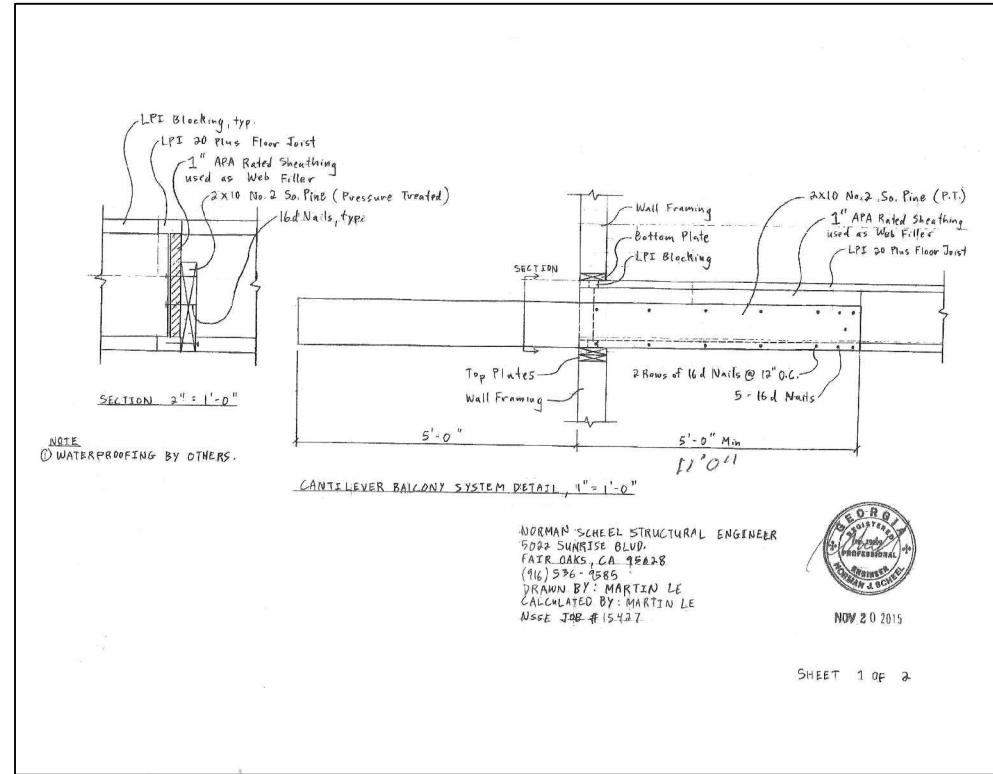 LPI Blocking, typ.
LPI 20 Plus Floor Joist
1" APA Rated Sheathing
used as Web Filler
2x10 No. 2 So. Pine (Pressure Treated)
16d Nails, type
SECTION 2" = 1'-0"
NOTE
① WATERPROOFING BY OTHERS.
Wall Framing
Bottom Plate
LPI Blocking
SECTION
2x10 No. 2 So. Pine (P.T.)
1" APA Rated Sheathing
used as Web Filler
LPI 20 Plus Floor Joist
Top Plates
Wall Framing
2 Rows of 16d Nails @ 12" O.C.
5-16d Nails
5'-0"
5'-0" Min
11'0"
CANTILEVER BALCONY SYSTEM DETAIL, 1" = 1'-0"
NORMAN SCHEEL STRUCTURAL ENGINEER
5022 SUNRISE BLVD.
FAIR OAKS, CA 95628
(916) 536-9585
DRAWN BY: MARTIN LE
CALCULATED BY: MARTIN LE
NSSE JOB #15427
GEORGIA
REGISTERED
PROFESSIONAL
ENGINEER
NORMAN J. SCHEEL
NOV 20 2015
SHEET 1 OF 2